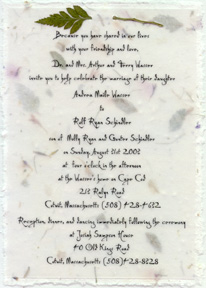 Because you have shared in our lives
with your friendship and love,
Dr. and Mrs. Arthur and Perry Wasser
invite you to help celebrate the marriage of their daughter
Andrea Marle Wasser
to
Ralf Ryan Schindler
son of Molly Ryan and Gunter Schindler
on Sunday August 31st 2002
at four o'clock in the afternoon
at the Wasser's home on Cape Cod
218 Ralyn Road
Cotuit, Massachusetts (508)428-4682
Reception, dinner, and dancing immediately following the ceremony
at Josiah Sampson House
40 Old Kings Road
Cotuit, Massachusetts (508)428-8828